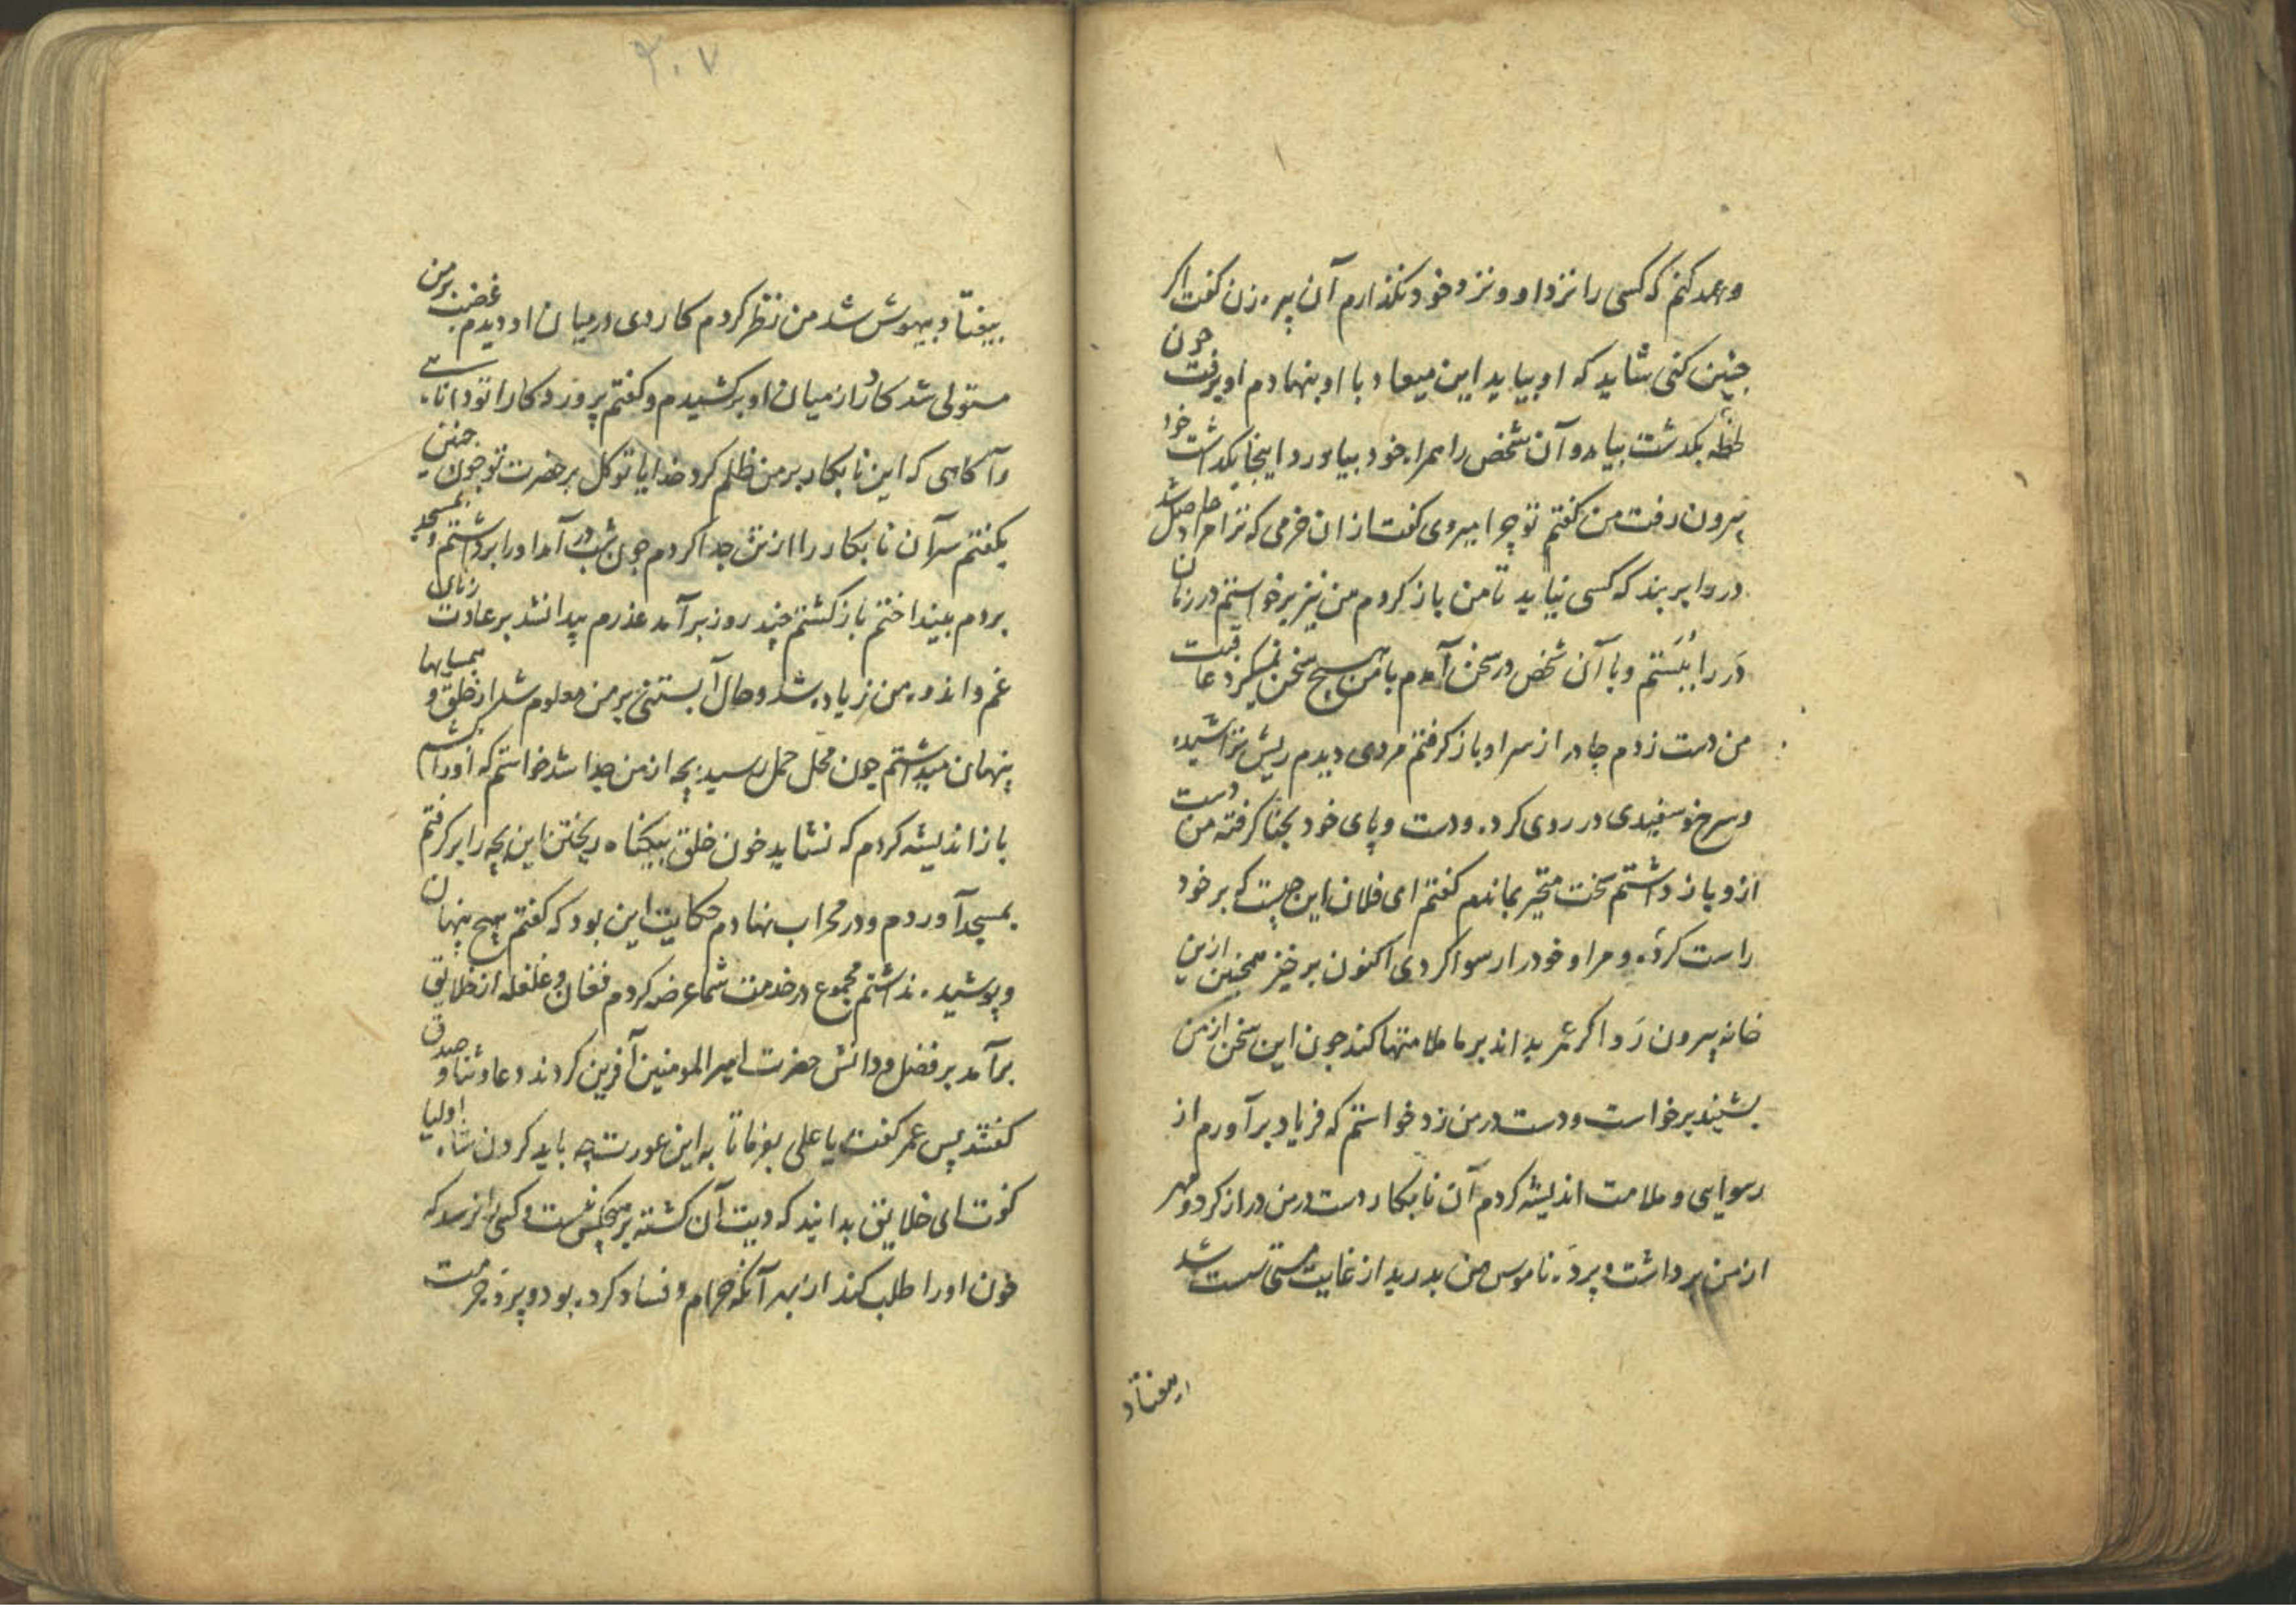 وعهد کنم که کسی را نزد او و نزد خود نگذارم آن پیره زن گفت اگر
چنین کنی شاید که او بیاید این میعاد با او بنهادم او برفت چون
لحظهٔ بگذشت بیامد و آن شخص را همراه خود بیاورد اینجا بگذاشت خود
بیرون رفت من گفتم تو چرا میروی گفت از ان خرمی که ترا مراد حاصل شد
در را بر بند که کسی نیاید تا من باز کردم من نیز برخواستم در زمان
دَر را ببَستم و با آن شخص در سخن آمدم با من هیچ سخن نمیکرد عاقبت
من دست زدم چادر از سر او باز کرفتم مردی دیدم ریش تراشیده
و سرخ و سفیدی در روی کرده و دست و پای خود بحنا کرفته من دست
ازو باز داشتم سخت متحیر بماندم کفتم ای فلان این چیست که بر خود
راست کردهٔ و مرا و خود را رسوا کردی اکنون برخیز همچنین ازین
خانه بیرون رَو اکر عمر بداند بر ما ملامتها کند چون این سخن از من
بشنید برخواست و دست در من زد خواستم که فریاد برآورم از
رسوایی و ملامت اندیشه کردم آن نابکار دست در من دراز کرد و مهر
از من برداشت و پردهٔ ناموس من بدرید از غایت مستی سست شد
بیفتاد
۲۰۷
بیفتاد و بیهوش شد من نظر کردم کاردی در میان او دیدم غضب بر من
مستولی شد کارد از میان او برکشیدم و کفتم پروردکارا تو دانایی
و آکاهی که این نابکار بر من ظلم کرد خدایا توکل بر حضرت تو چون چنین
بکفتم سر آن نابکار را از تن جدا کردم چون شب در آمد او را برداشتم و بمسجد
بردم بینداختم باز کشتم چند روز برآمد عذرم پیدا نشد بر عادت زنان
غم و اندوه من زیاده شد و حال آبستنی بر من معلوم شد از خلق و همسایها
پنهان میداشتم چون محل حمل رسید بچه از من جدا شد خواستم که او را بکشم
باز اندیشه کردم که نشاید خون خلق بیکناه ریختن این بچه را برکرفتم
بمسجد آوردم و در محراب نهادم حکایت این بود که کفتم هیچ پنهان
و پوشیده نداشتم مجموع در خدمت شما عرضه کردم فغان و غلغله از خلایق
برآمد بر فضل و دانش حضرت امیر المومنین آفرین کردند دعا و ثنا و صدق
کفتند پس عمر کفت یا علی بفرما تا به این عورت چه باید کردن شاه اولیا
کفت ای خلایق بدانید که دیت آن کشته بر هیچکس نیست و کسی را نرسد که
خون او را طلب کند از بهر آنکه حرام و فساد کرده بود و پردهٔ حرمت